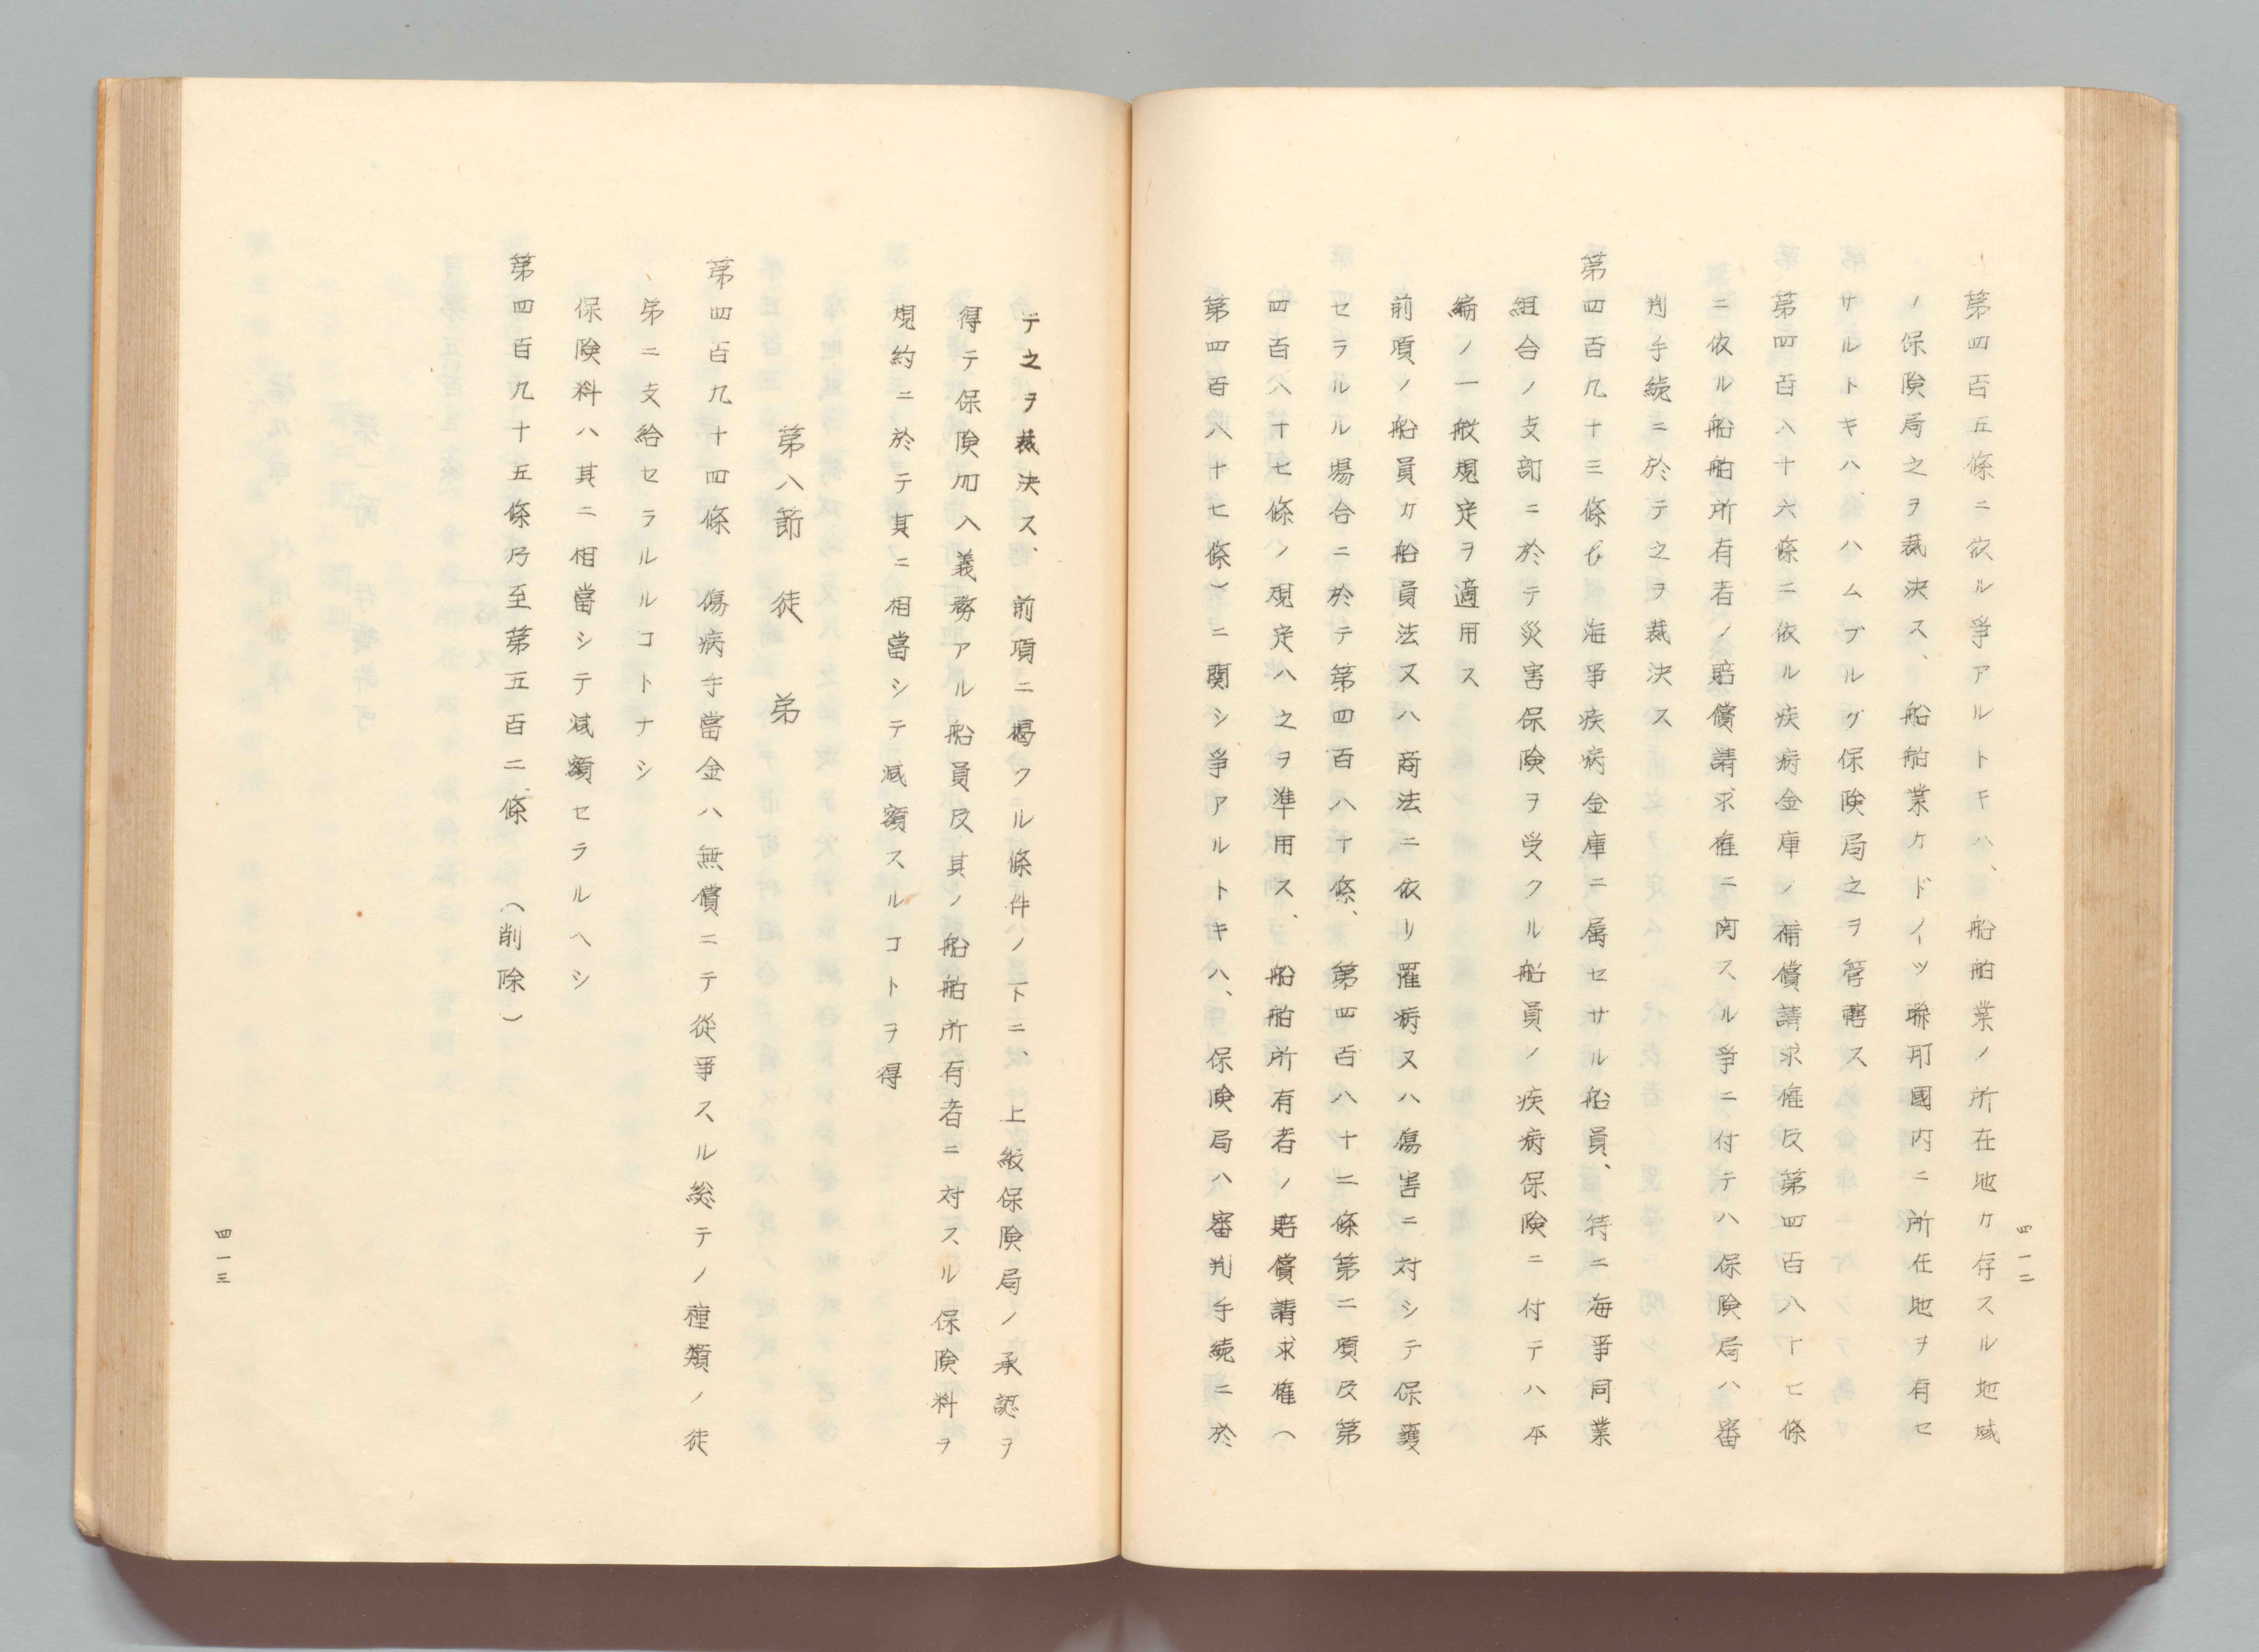 四一二
第四百五條ニ依ル爭アルトキハ、船舶業ノ所在地カ存スル地域
ノ保険局之ヲ裁決ス、船舶業カドイツ聯邦國内ニ所在地ヲ有セ
サルトキハ、ハムブルグ保険局之ヲ管轄ス
第四百八十六條ニ依ル疾病金庫ノ補償請求権及第四百八十七條
ニ依ル船舶所有者ノ賠償請求権ニ関スル爭ニ付テハ保険局ハ審
判手続ニ於テ之ヲ裁決ス
第四百九十三條 海事疾病金庫ニ属セサル船員、特ニ海事同業
組合ノ支部ニ於テ災害保険ヲ受クル船員ノ疾病保険ニ付テハ本
編ノ一般規定ヲ適用ス
前項ノ船員カ船員法又ハ商法ニ依リ罹病又ハ傷害ニ対シテ保護
セラルル場合ニ於テ第四百八十條、第四百八十二條第二項及第
四百八十七條ノ規定ハ之ヲ準用ス、船舶所有者ノ賠償請求権（
第四百八十七條）ニ関シ爭アルトキハ、保険局ハ審判手続ニ於
テ之ヲ裁決ス、前項ニ掲クル條件ノ下ニ、上級保険局ノ承認ヲ
得テ保険加入義務アル船員及其ノ船舶所有者ニ対スル保険料ヲ
規約ニ於テ其ニ相當シテ減額スルコトヲ得
第八節 徒弟
第四百九十四條 傷病手當金ハ無償ニテ從事スル総テノ種類ノ徒
弟ニ支給セラルルコトナシ
保険料ハ其ニ相當シテ減額セラルヘシ
第四百九十五條乃至第五百二條 （削除）
四一三